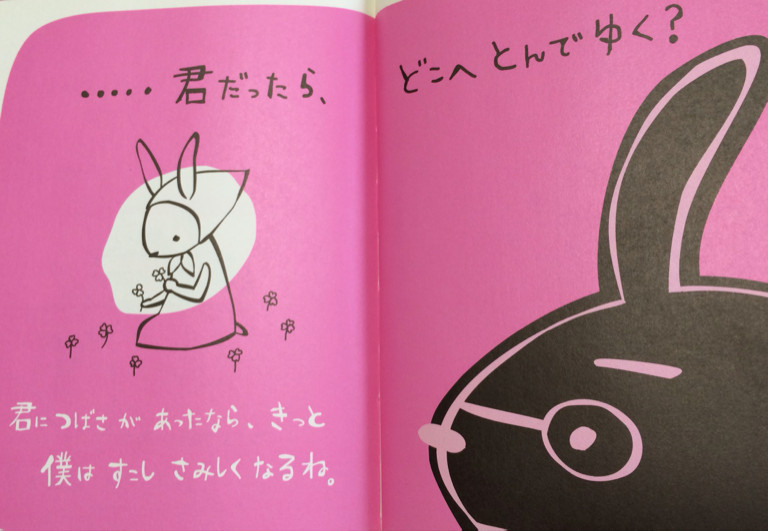 ・・・・・君だったら、
どこへ とんで ゆく?
君に つばさ が あったなら、きっと
僕は すこし さみしく なるね。